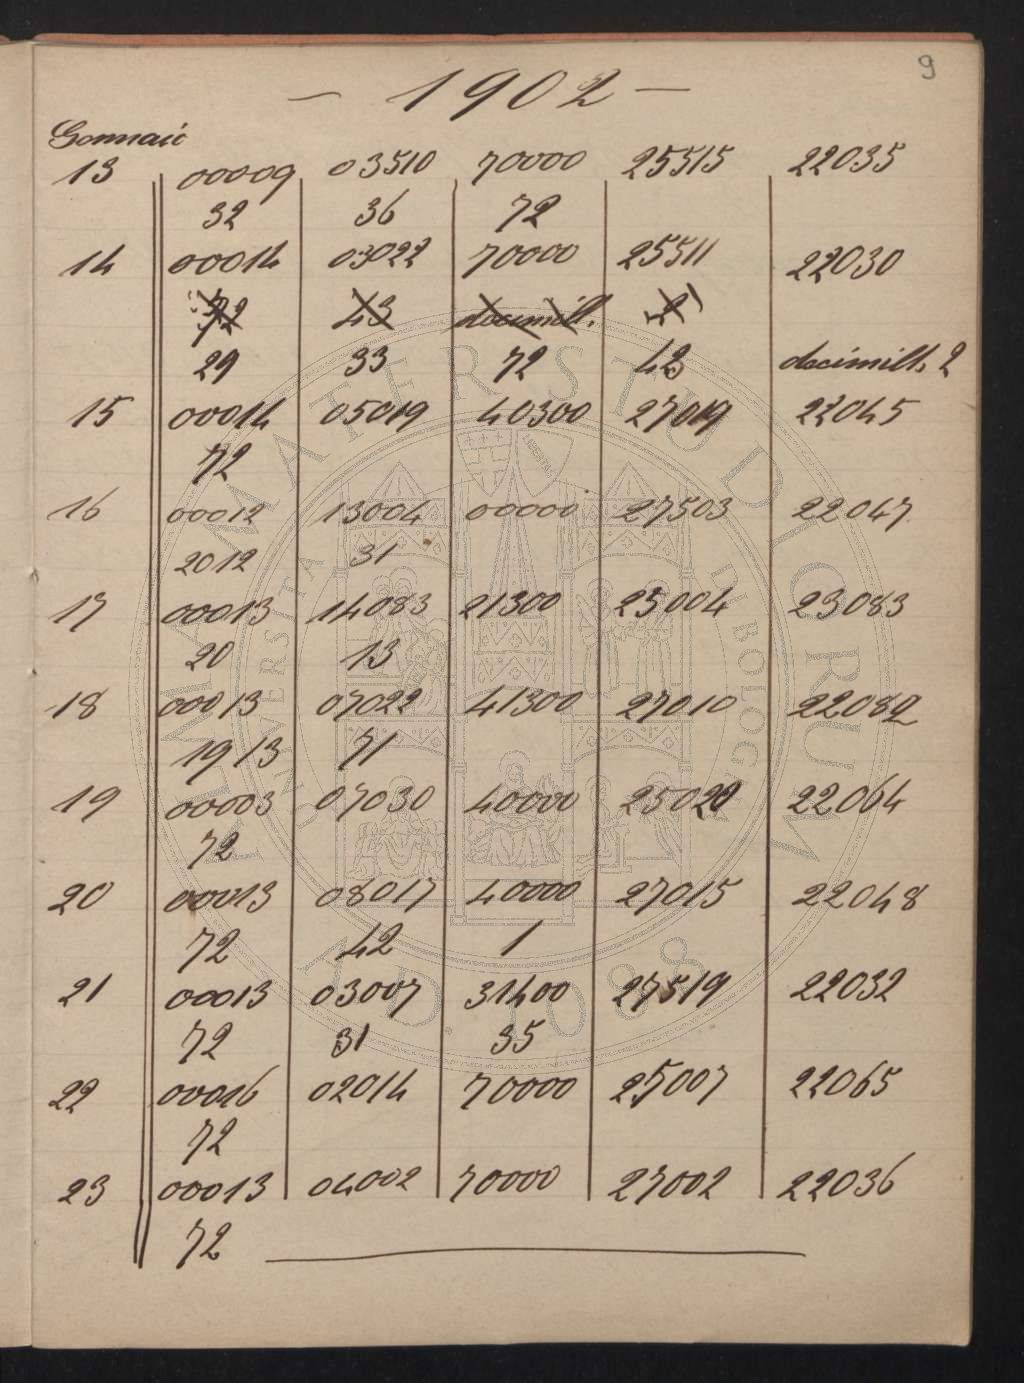 9
— 1902 —
Gennaio
13 00009 03510 70000 25515 22035
32 36 72
14 00014 03022 70000 25511 22030
72 43 decimill. 2
29 33 72 42 decimill. 2
15 00014 05019 40300 27019 22045
72
16 00012 13004 00000 27503 22047
2012 31
17 00013 14083 21300 25004 23083
20 13
18 00013 07022 41300 27010 22082
1913 71
19 00003 07030 40000 25020 22064
72
20 00013 08017 40000 27015 22048
72 42 1
21 00013 03007 31400 27519 22032
72 31 35
22 00016 02014 70000 25007 22065
72
23 00013 04002 70000 27002 22036
72
ALMA MATER STUDIORUM
UNIVERSITÀ DI BOLOGNA
A.D. 1088